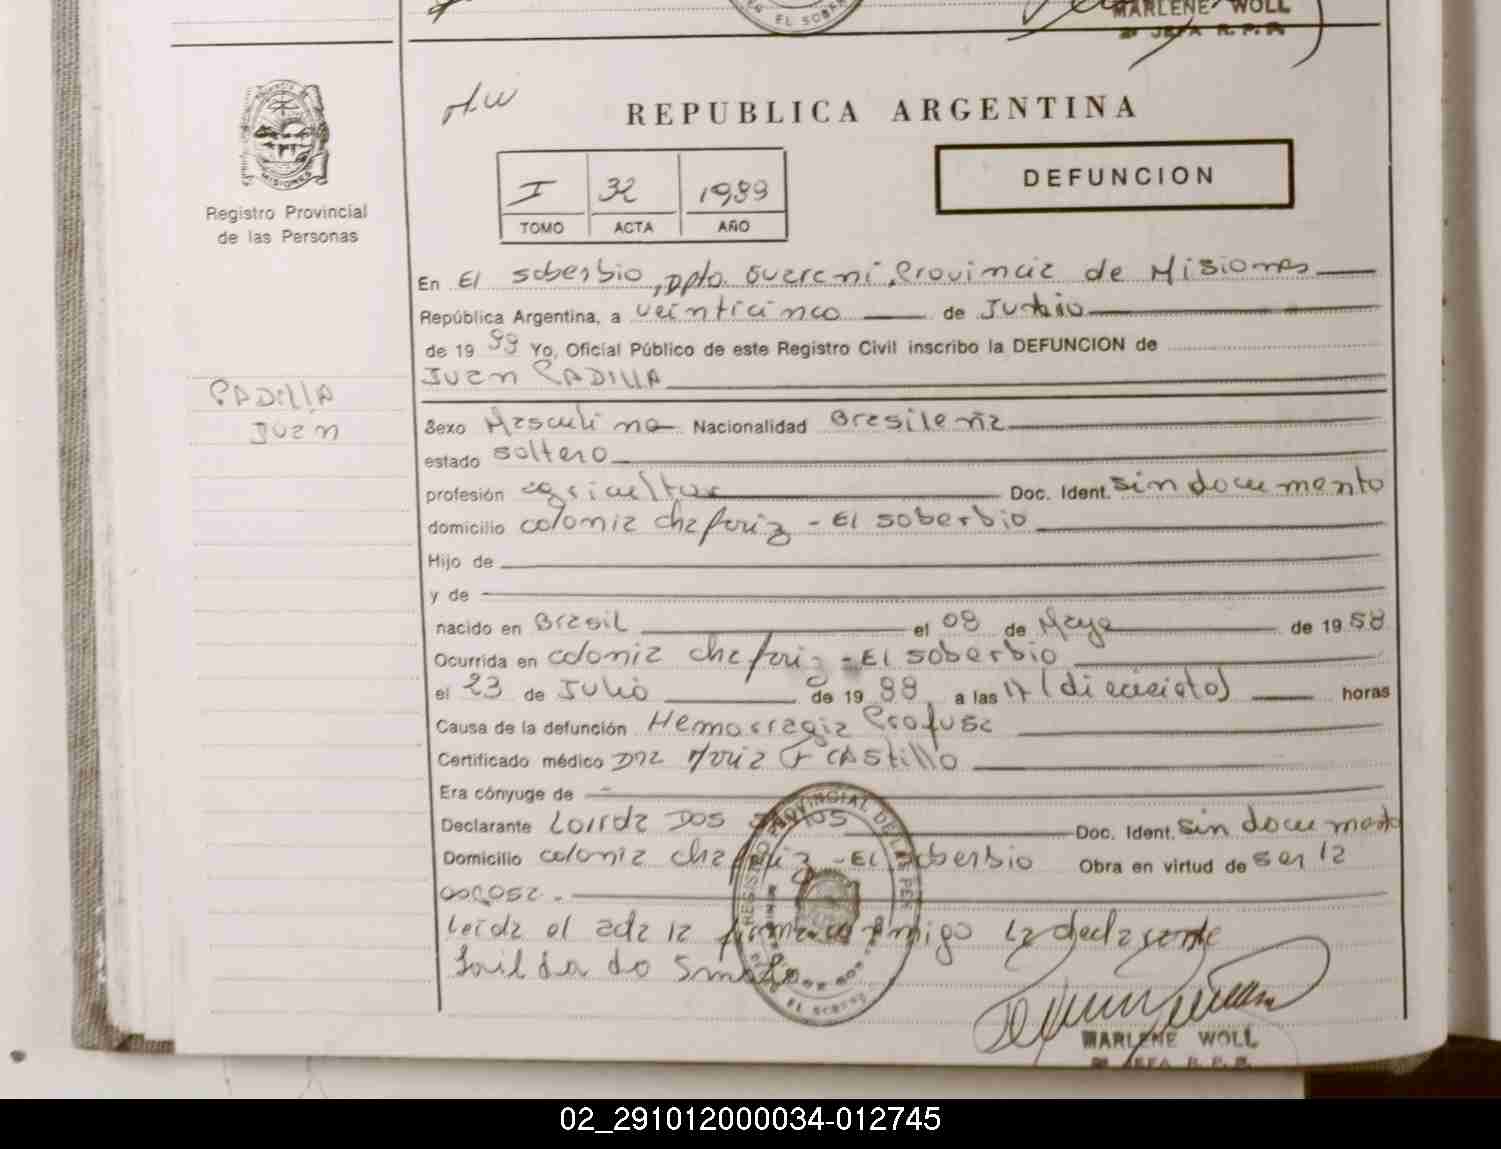 MARLENE WOLL
JEFA R.P.P.
EL SOBER
MISIONES
Registro Provincial
de las Personas
REPUBLICA ARGENTINA
I 32 1989
TOMO ACTA AÑO
DEFUNCION
En El soberbio, Dpto. Guarani, Provincia de Misiones
República Argentina, a veinticinco de
de 19 Yo, Oficial Público de este Registro Civil inscribo la DEFUNCION de
Juan PADILLA
PADILLA
Juan
Sexo Masculino Nacionalidad Brasileña
estado soltero
profesión agricultor Doc. Ident. sin documento
domicilio colonia chafariz - El soberbio
Hijo de
y de
nacido en Brasil el 08 de Mayo de 1958
Ocurrida en colonia chafariz - El soberbio
el 23 de Julio de 19 a las 17 (diecisiete) horas
Causa de la defunción Hemorragia Profusa
Certificado médico Dra CASTILLO
Era cónyuge de -
Declarante DOS Doc. Ident. sin documento
Domicilio colonia chafariz - El soberbio Obra en virtud de ser la
REGISTRO PROVINCIAL DE LAS PER
Leida el acta la firma conmigo la declarante
EL SOBERB
MARLENE WOLL
JEFA R.P.P.
02_291012000034-012745